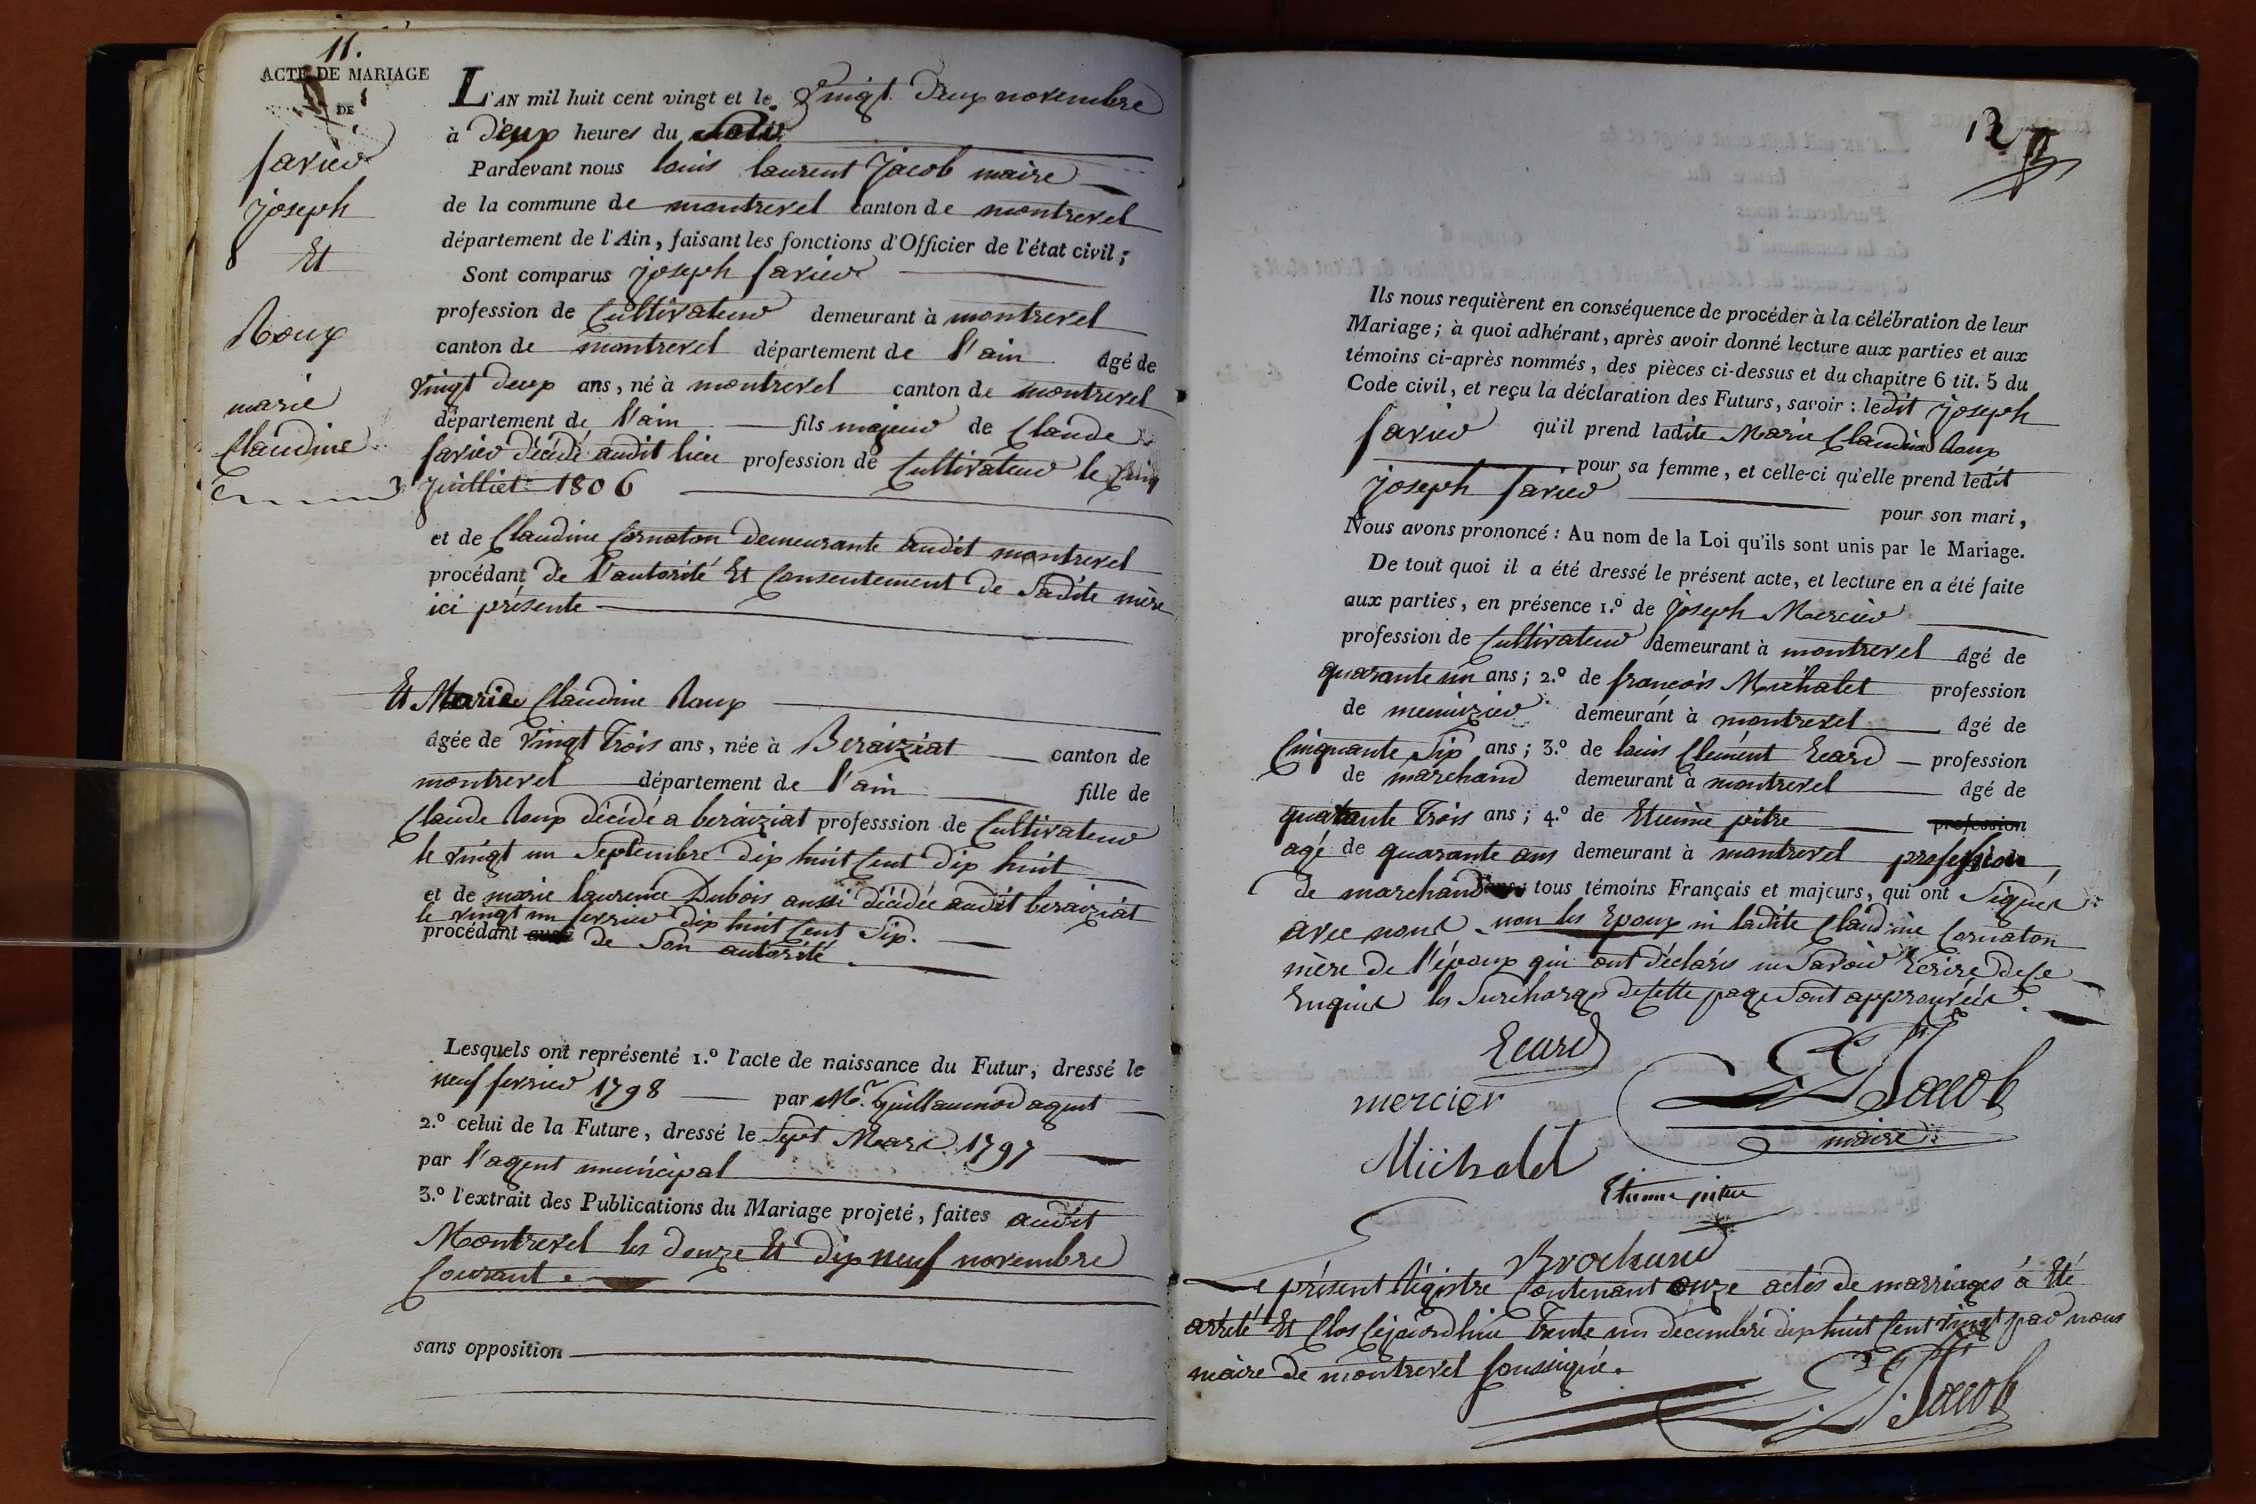 11.
ACTE DE MARIAGE
DE
favier
joseph
Et
Roux
marie
Claudine
L'AN mil huit cent vingt et le vingt deux novembre
à deux heures du
Pardevant nous louis laurent jacob maire
de la commune de montrevel canton de montrevel
département de l'Ain, faisant les fonctions d'Officier de l'état civil;
Sont comparus joseph favier
profession de Cultivateur demeurant à montrevel
canton de montrevel département de l'ain âgé de
vingt deux ans, né à montrevel canton de montrevel
département de l'ain fils majeur de Claude
favier décédé audit lieu profession de Cultivateur le
juilliet 1806
et de Claudine Cornaton demeurante audit montrevel
procédant de l'autorité Et Consentement de Sadite mère
ici présente
Et Marie Claudine Roux
âgée de vingt trois ans, née à Beraiziat canton de
montrevel département de l'ain fille de
Claude Roux décédé a beraiziat professsion de Cultivateur
le vingt un Septembre dix huit Cent dix huit
et de marie laurence Dubois aussi décédée audit beraiziat
le vingt un fevrier dix huit Cent Six.
procédant de Son autorité.
Lesquels ont représenté 1.º l'acte de naissance du Futur, dressé le
neuf fevrier 1798 par Mr. Guillaumod agent
2.º celui de la Future, dressé le Sept Mars 1797
par l'agent municipal
3.º l'extrait des Publications du Mariage projeté, faites audit
Montrevel les douze Et dix neuf novembre
Courant.
sans opposition
12
Ils nous requièrent en conséquence de procéder à la célébration de leur
Mariage; à quoi adhérant, après avoir donné lecture aux parties et aux
témoins ci-après nommés, des pièces ci-dessus et du chapitre 6 tit. 5 du
Code civil, et reçu la déclaration des Futurs, savoir: ledit joseph
favier qu'il prend ladite Marie Claudine Roux
pour sa femme, et celle-ci qu'elle prend ledit
joseph favier pour son mari,
Nous avons prononcé: Au nom de la Loi qu'ils sont unis par le Mariage.
De tout quoi il a été dressé le présent acte, et lecture en a été faite
aux parties, en présence 1.º de joseph Mercier
profession de Cultivateur demeurant à montrevel âgé de
quarante un ans; 2.º de françois Michalet profession
de menuizier demeurant à montrevel âgé de
Cinquante Six ans; 3.º de louis Clément Ecard profession
de marchand demeurant à montrevel âgé de
quarante trois ans; 4.º de Etienne pitre profession
agé de quarante ans demeurant à montrevel profession
de marchand tous témoins Français et majeurs, qui ont Signés
avec nous non les Epoux ni ladite Claudine Cornaton
mère de l'époux qui ont déclarés ne Savoir Ecrire de Ce
Enquis les Surcharges de Cette page Sont approuvées.
Ecard
mercier
Jacob
maire
Michalet
Etienne pitre
Brochand
Le présent Régistre Contenant onze actes de marriages a Eté
arrêté Et Clos Cejourd'hui trente un decembre dix huit Cent vingt par nous
maire de montrevel soussigné.
Jacob